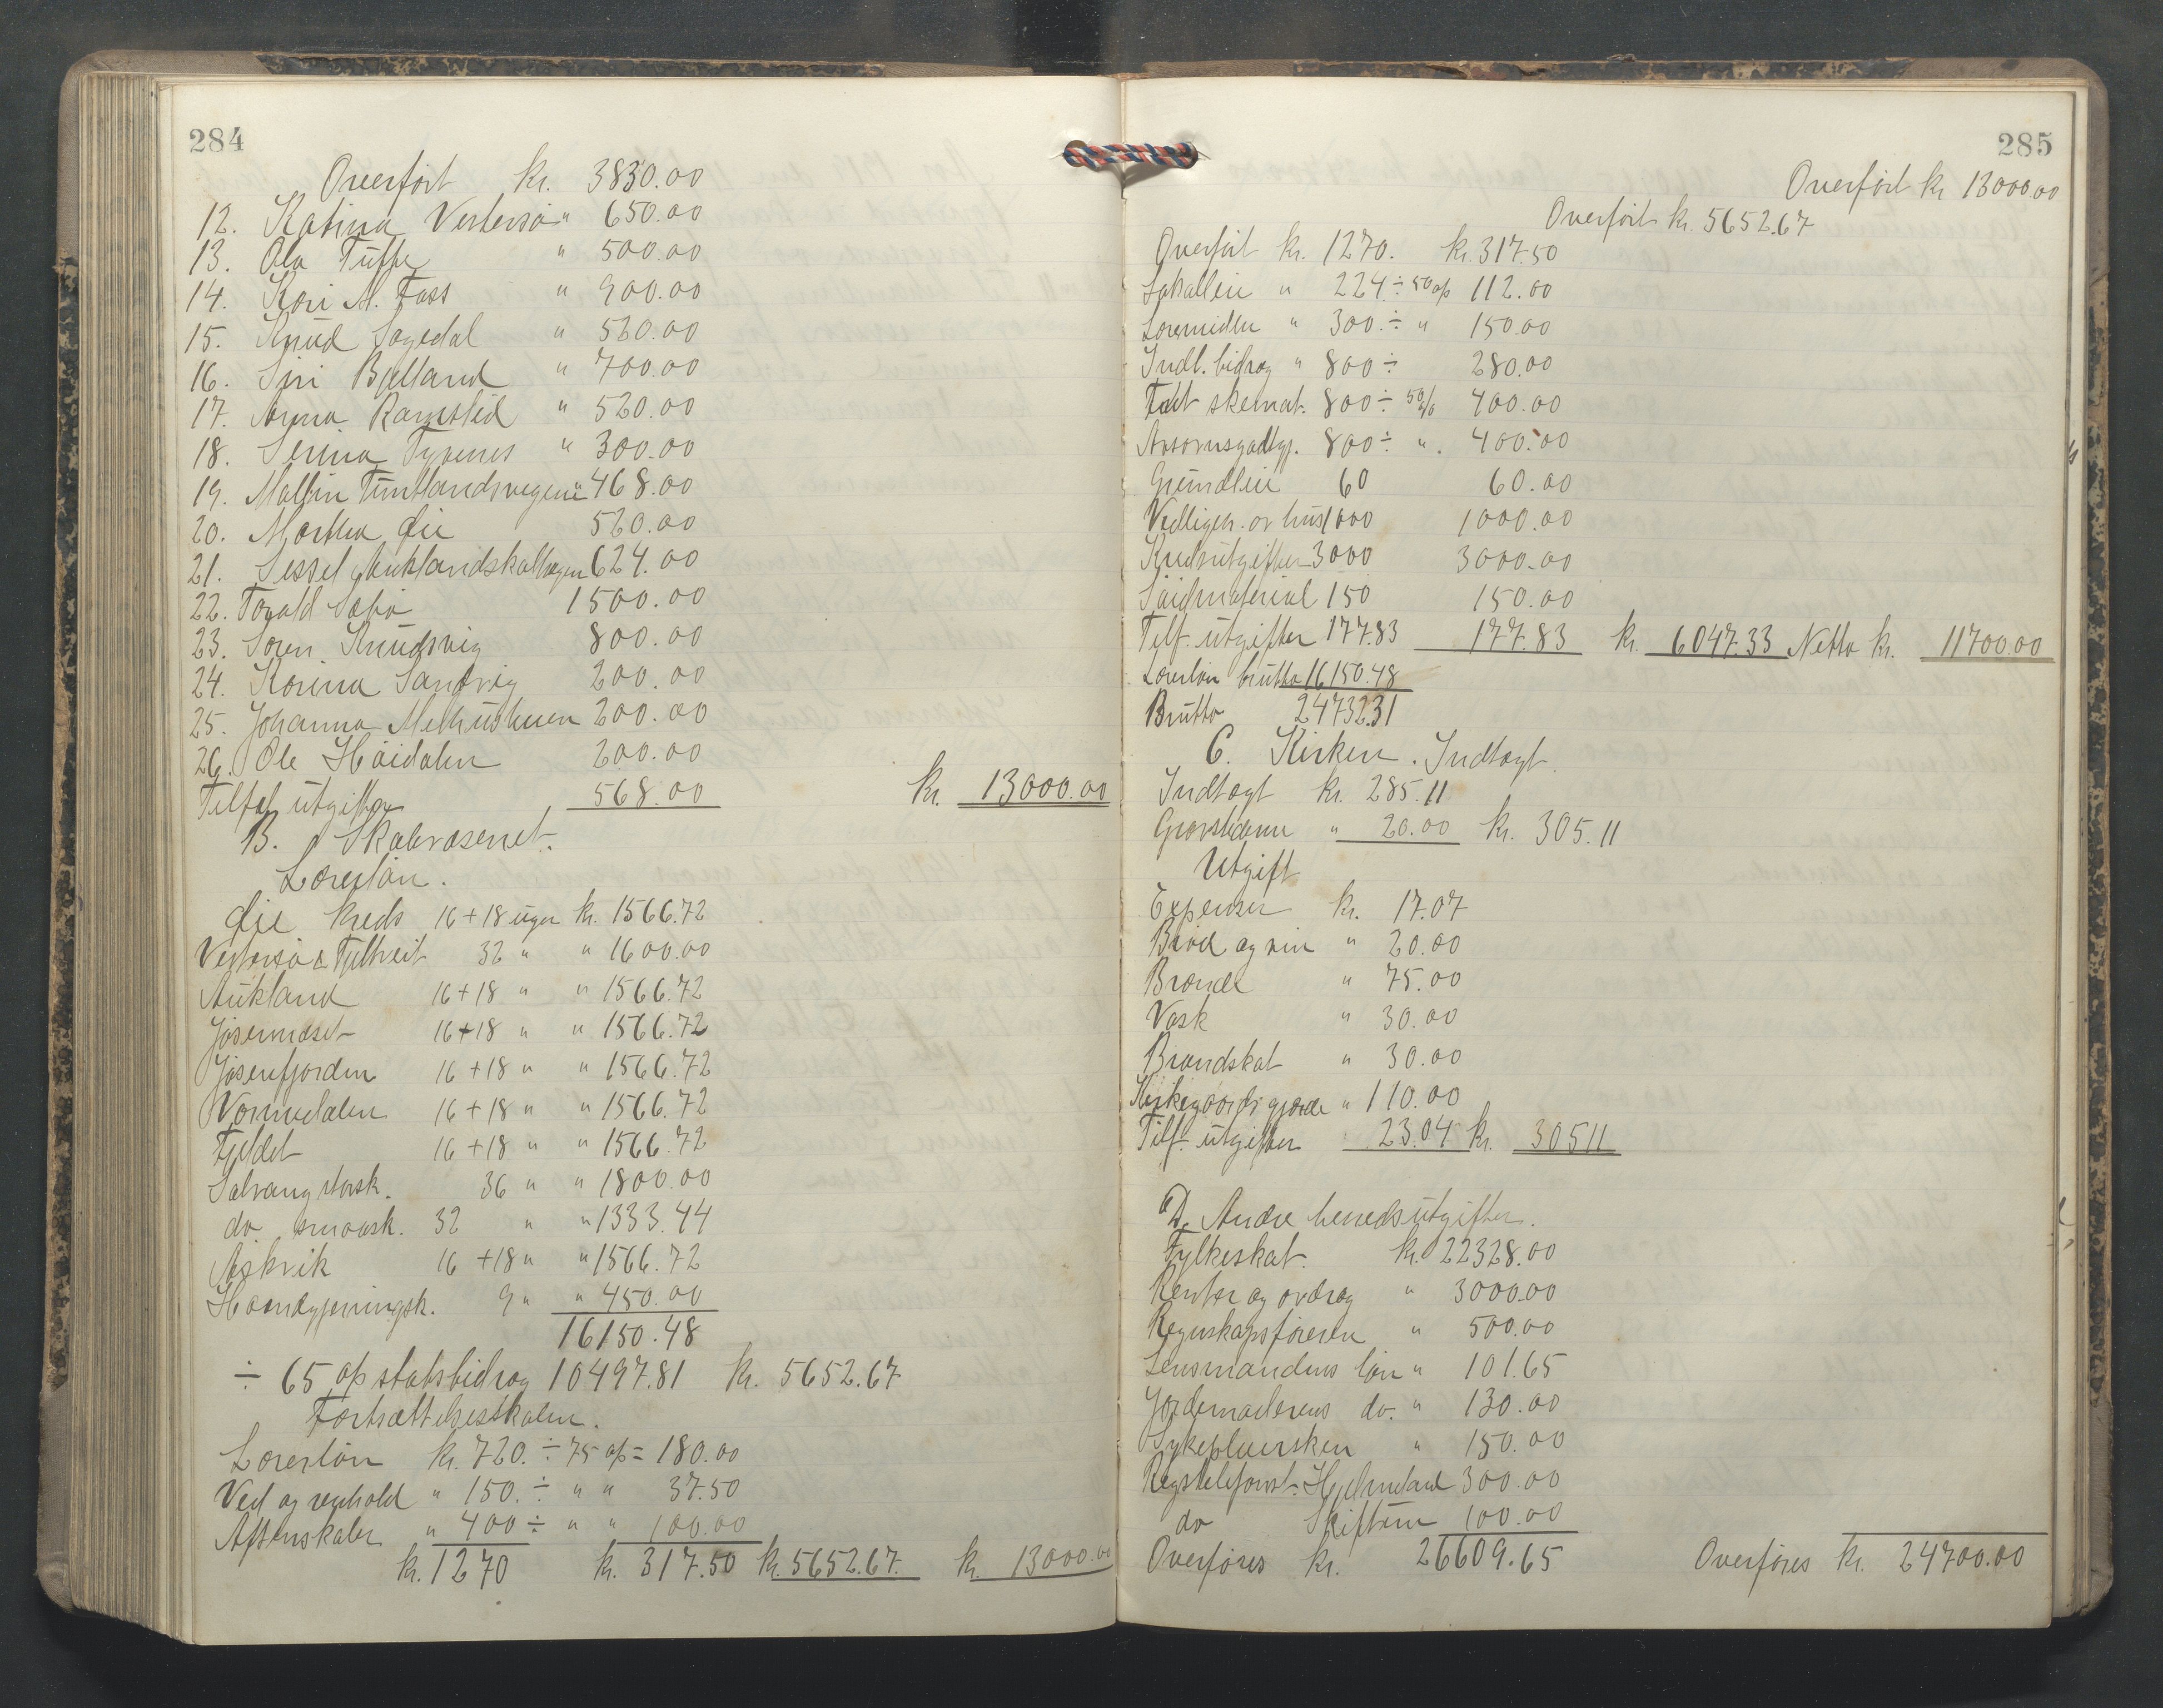 284
Overført kr. 3830.00
12. Katina Vestersø " 650.00
13. Ola Tufte " 500.00
14. Kari A. Foss " 900.00
15. Knud Sagedal " 520.00
16. Siri Bjelland " 700.00
17. Anna Ramslid " 520.00
18. Serina " 300.00
19. Mallin Tuntlandsvegene " 468.00
20. Martha Øie 520.00
21. Sessel 624.00
22. Torvald Sabø 1500.00
23. Søren Knudsvig 800.00
24. Korina Sandvig 200.00
25. Johanna 200.00
26. Ole Høidalen 200.00
Tilfæl utgifter 568.00 kr. 13000.00
B. Skolevæsenet.
Lærerløn.
Øie kreds 16+18 uger kr. 1566.72
Vestersø & Fjeltveit 32 " " 1600.00
Aukland 16+18 " " 1566.72
Jøsenneset 16+18 " " 1566.72
Jøsenfjorden 16+18 " " 1566.72
Vormedalen 16+18 " " 1566.72
Fjeldet 16+18 " " 1566.72
Sølvang storsk. 36 " " 1800.00
do smaask. 32 " " 1333.44
Askvik 16+18 " " 1566.72
Haandgjerningsk. 9 " " 450.00
16150.48
÷ 65 op statsbidrag 10497.81 kr. 5652.67
Fortsættelsesskolen.
Lærerløn kr. 720. ÷ 75 op = 180.00
Ved og renhold " 150. ÷ " " 37.50
Aftenskoler " 400 ÷ " " 100.00
kr. 1270 kr. 317.50 kr. 5652.67. kr. 13000.00
285
Overført kr 13000.00
Overført kr. 5652.67
Overført kr. 1270. kr. 317.50
Lokalleie " 224 ÷ 50 op 112.00
Læremidler " 300. ÷ " 150.00
Indb. bidrag " 800 ÷ 280.00
Fælt skemat. 800 ÷ 50% 400.00
800 ÷ " . 400.00
Grundleie 60 60.00
Vedligeh. av hus 1000 1000.00
Kredsutgifter 3000 3000.00
Sløidmaterial 150 150.00
Tilf. utgifter 177.83 177.83 kr. 6047.33 Netto kr. 11700.00
Lærerløn brutto 16150.48
Brutto 24732.31
C. Kirken. Indtægt.
Indtægt kr. 285.11
Gravstederne " 20.00 kr. 305.11
Utgift
Expenser kr. 17.07
Brød og vin " 20.00
Brænde " 75.00
Vask " 30.00
Brandskat " 30.00
Kirkegaards gjærde " 110.00
Tilf. utgifter 23.04 kr. 305 11
D. Andre herredsutgifter.
Fylkeskat. kr. 22328.00
Renter og avdrag " 3000.00
Regnskapsføreren " 500.00
Lensmandens løn " 101.65
Jordemoderens do. " 130.00
Sykepleiersken " 150.00
Rigstelefonst. Hjelmeland 300.00
do Skiftun 100.00
Overføres kr. 26609.65 Overføres kr. 24700.00